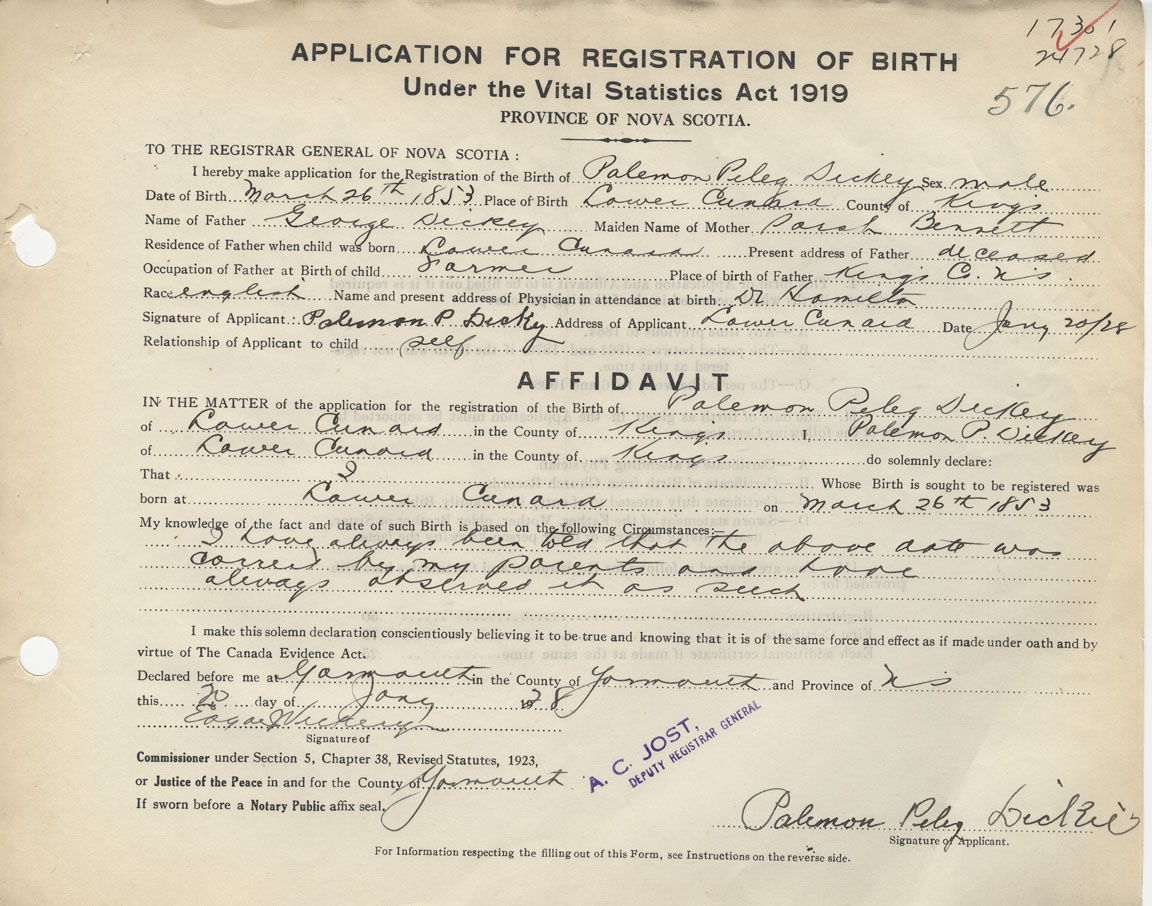 17301
24728
576.
APPLICATION FOR REGISTRATION OF BIRTH
Under the Vital Statistics Act 1919
PROVINCE OF NOVA SCOTIA.
TO THE REGISTRAR GENERAL OF NOVA SCOTIA :
I hereby make application for the Registration of the Birth of Palemon Peleg Dickey Sex male
Date of Birth March 26th 1853 Place of Birth Lower Canard County of Kings
Name of Father George Dickey Maiden Name of Mother Sarah Bennett
Residence of Father when child was born Lower Canard Present address of Father deceased
Occupation of Father at Birth of child Farmer Place of birth of Father Kings C. N.S.
Race english Name and present address of Physician in attendance at birth Dr Hamilton
Signature of Applicant : Palemon P. Dicky Address of Applicant Lower Canard Date Jany 20/28
Relationship of Applicant to child self
AFFIDAVIT
IN THE MATTER of the application for the registration of the Birth of Palemon Peleg Dickey
of Lower Canard in the County of Kings I, Palemon P. Dickey
of Lower Canard in the County of Kings do solemnly declare:
That I Whose Birth is sought to be registered was
born at Lower Canard on March 26th 1853
My knowledge of the fact and date of such Birth is based on the following Circumstances:—
I have always been told that the above date was
correct by my parents and have
always observed it as such
I make this solemn declaration conscientiously believing it to be true and knowing that it is of the same force and effect as if made under oath and by
virtue of The Canada Evidence Act.
Declared before me at Yarmouth in the County of Yarmouth and Province of N S
this 20 day of Jany 1928
Signature of
Commissioner under Section 5, Chapter 38, Revised Statutes, 1923,
or Justice of the Peace in and for the County of Yarmouth
If sworn before a Notary Public affix seal.
A. C. JOST,
DEPUTY REGISTRAR GENERAL
Palemon Peleg Dickie
Signature of Applicant.
For Information respecting the filling out of this Form, see Instructions on the reverse side.